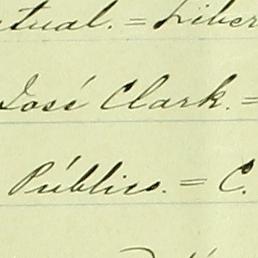 tual. = Liber
José Clark. =
Público. = C.